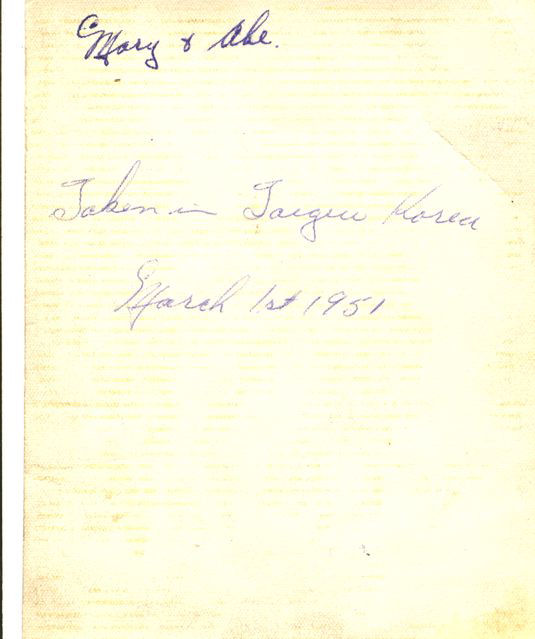 Mary & Abe.
Taken in Taegu Korea
March 1st 1951